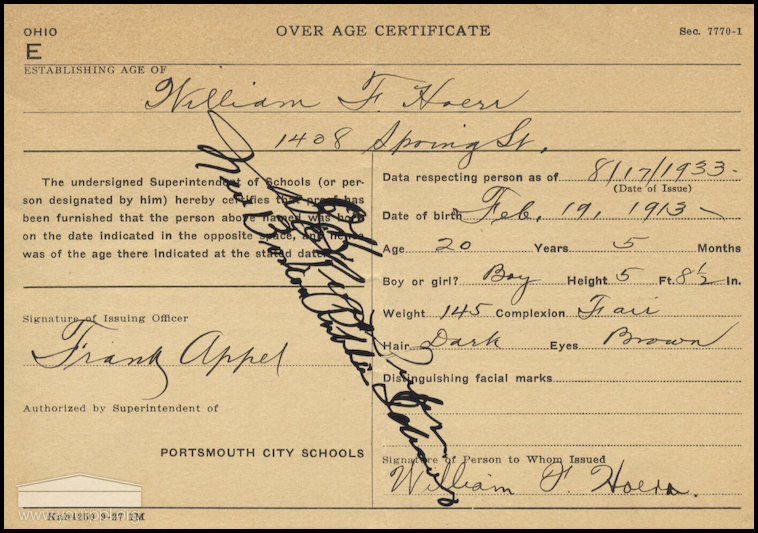 OHIO
OVER AGE CERTIFICATE
Sec. 7770-1
E
ESTABLISHING AGE OF
William F. Hoerr
1408 Spring St.
The undersigned Superintendent of Schools (or per-
son designated by him) hereby certifies that proof has
been furnished that the person above named was born
on the date indicated in the opposite space, and hence
was of the age there indicated at the stated date.
Signature of Issuing Officer
Frank Appel
Authorized by Superintendent of
PORTSMOUTH CITY SCHOOLS
Data respecting person as of 8/17/1933
(Date of Issue)
Date of birth Feb. 19, 1913
Age 20 Years 5 Months
Boy or girl? Boy Height 5 Ft. 8 1/2 In.
Weight 145 Complexion Fair
Hair Dark Eyes Brown
Distinguishing facial marks
Signature of Person to Whom Issued
William F. Hoerr.
Public Schools
9-27